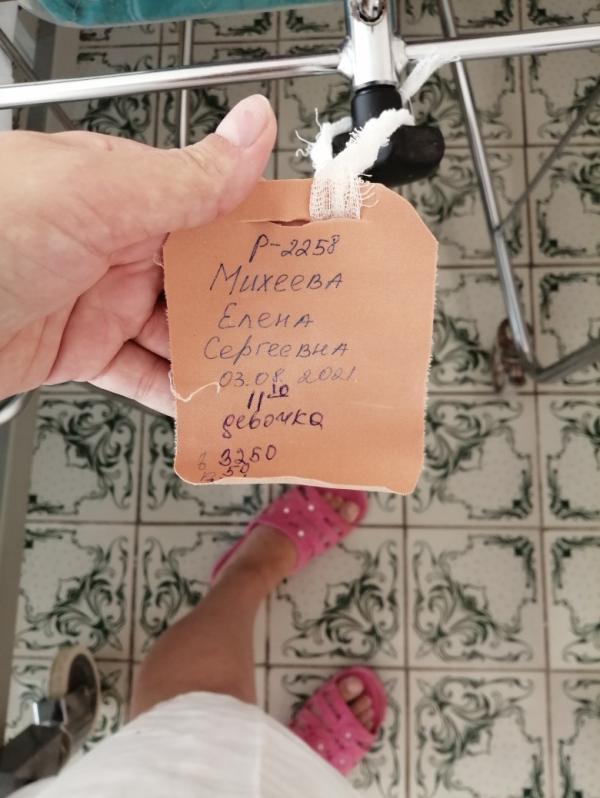 Р-2258
Михеева
Елена
Сергеевна
03.08.2021
11 10
девочка
в 3250
р 50